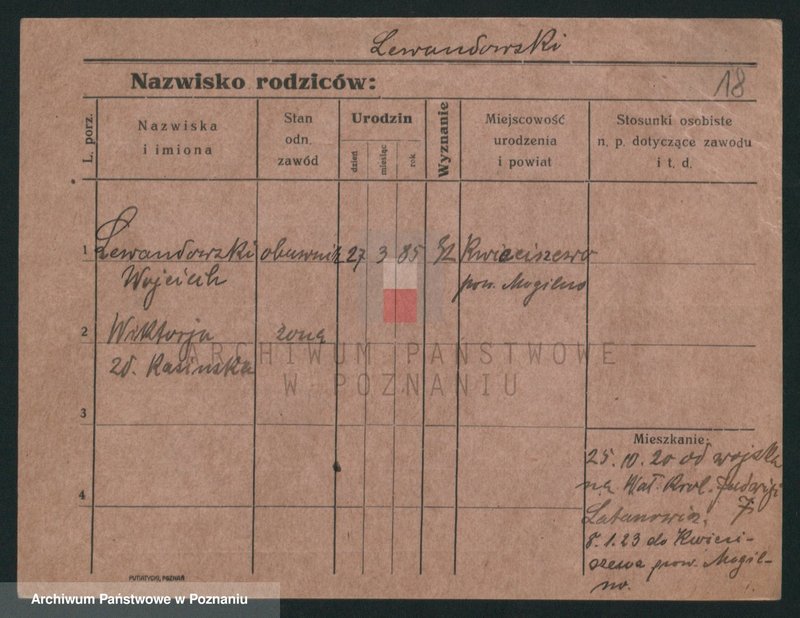 Lewandowski
Nazwisko rodziców:
18
L. porz.
Nazwiska
i imiona
Stan
odn.
zawód
Urodzin
dzień
miesiąc
rok
Wyznanie
Miejscowość
urodzenia
i powiat
Stosunki osobiste
n. p. dotyczące zawodu
i t. d.
1 Lewandowski obuwnik 27 3 85 Kwieciszewo
Wojciech pow. Mogilno
2 Wiktorja żona
zd. Kasińska
ARCHIWUM PAŃSTWOWE
W POZNANIU
3
4
Mieszkanie:
25.10.20 od wojska
na Wał Król. Jadwigi
7
8.1.23 do Kwieci-
szewa pow. Mogil-
no.
PUTIATYCKI, POZNAŃ
Archiwum Państwowe w Poznaniu